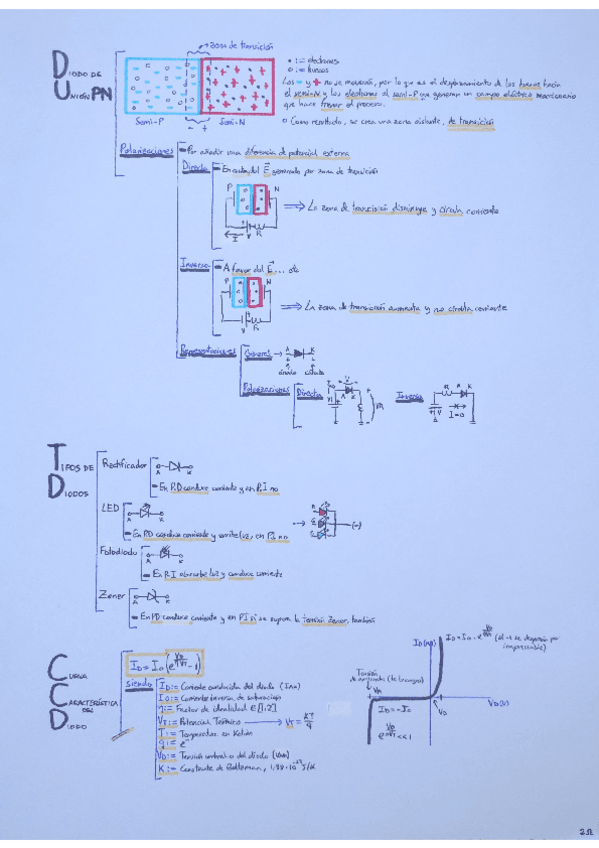 DIODO DE
UNIÓN PN
zona de transición
Semi-P
Semi-N
- +
• := electrones
o := huecos
Los - y + no se mueven, por lo que es el desplazamiento de los huecos hacia
el semi-N y los electrones al semi-P que generan un campo eléctrico
que hace frenar el proceso.
Como resultado, se crea una zona aislante, de transición
Polarizaciones
Por añadir una diferencia de potencial externa
Directa
En contra del E generado por zona de transición
P N
V R
I
La zona de transición disminuye y circula corriente
Inversa
A favor del E... etc
P N
V R
La zona de transición aumenta y no circula corriente
Representaciones
General
A K
ánodo cátodo
Polarizaciones
Directa
A K
Inversa
R A K
V
I=0
TIPOS DE
DIODOS
Rectificador
A K
En P.D conduce corriente y en P.I no
LED
A K
En P.D conduce corriente y emite luz, en P.I no
(-)
Fotodiodo
A K
En P.I absorbe luz y conduce corriente
Zener
A K
En P.D conduce corriente y en P.I si se supera la tensión Zener, también
CURVA
CARACTERÍSTICA
DEL
DIODO
I_D = I_0 (e^(V_D/ηV_T) - 1)
Siendo
I_D := Corriente conducida del diodo
I_0 := Corriente inversa de saturación
η := Factor de idealidad ∈ [1,2]
V_T := Potencial Térmico → V_T = KT/q
T := Temperatura en Kelvin
q := e-
V_D := Tensión umbral o del diodo
K := Constante de Boltzmann, 1,38·10^-23 J/K
I_D = I_0 · e^(V_D/ηV_T) (el -1 se desprecia por
Tensión
I_D = -I_0
e^(V_D/ηV_T) << 1
V_D (V)